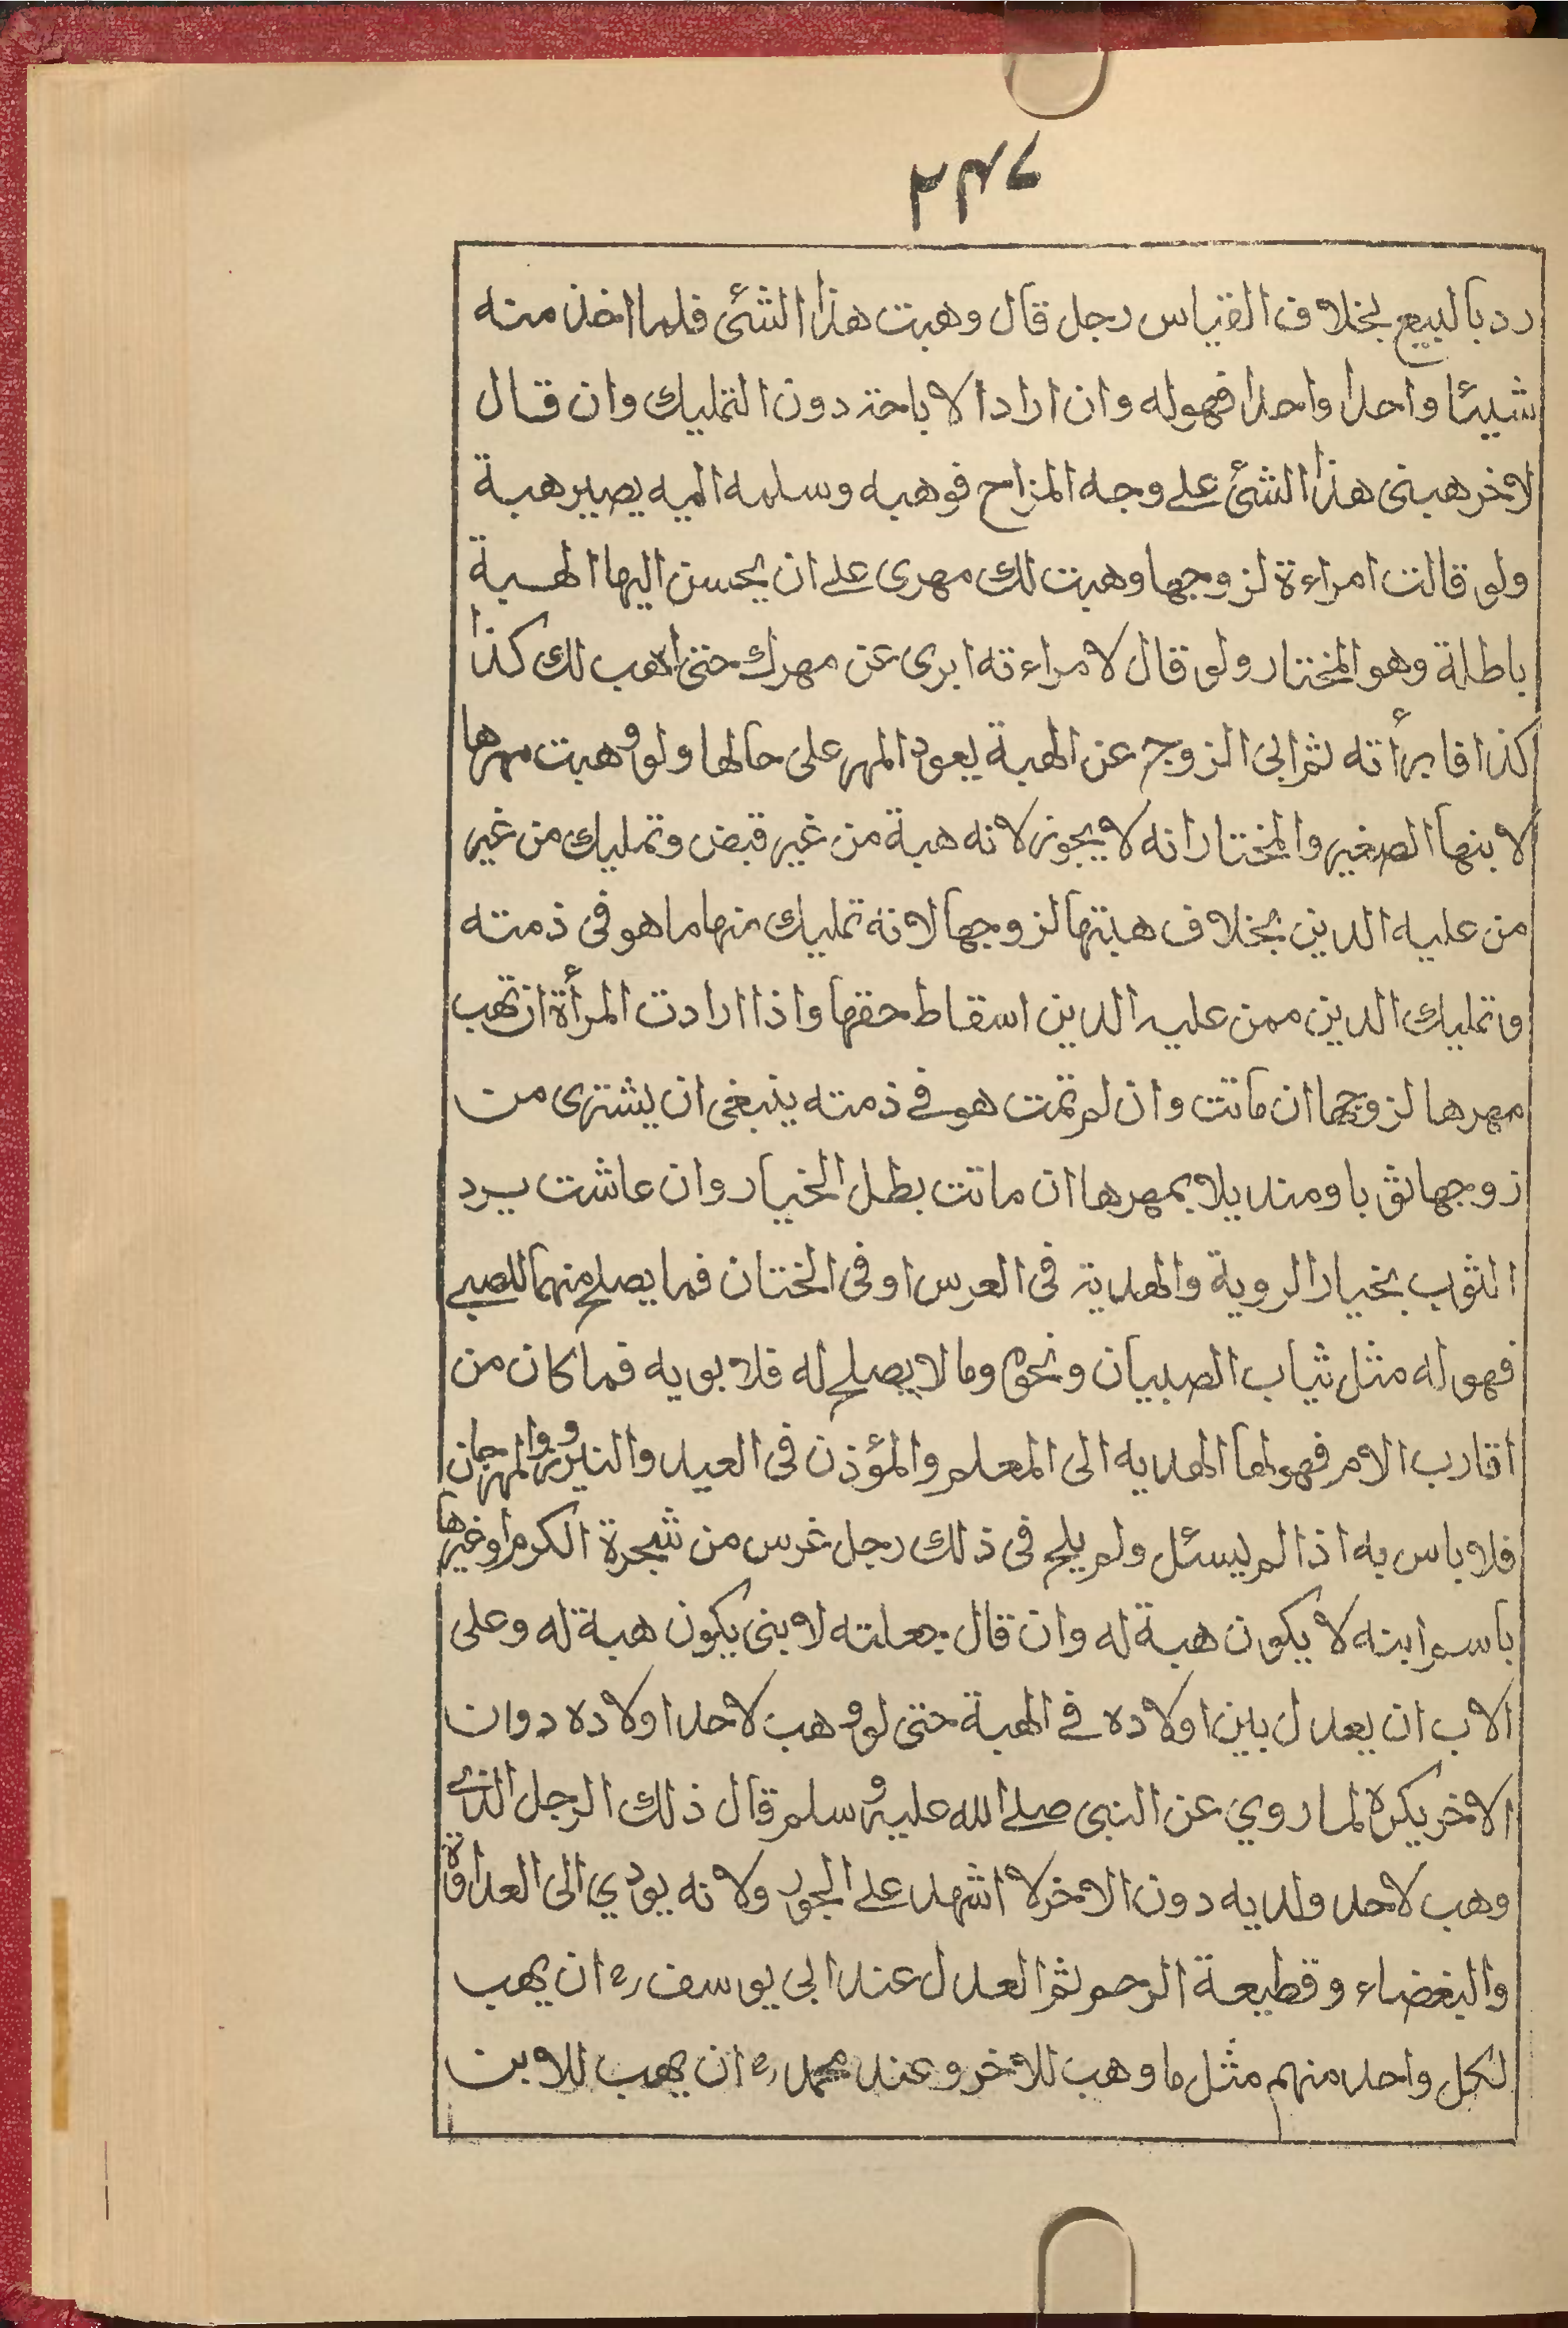 ٢٤٧
رد بالبيع بخلاف القياس رجل قال وهبت هذا الشئ فلما اخذ منه
شيئا واحدا واحدا فهو له وان اراد الاباحة دون التمليك وان قال
لاخر هبنى هذا الشئ على وجه المزاح فوهبه وسلمه اليه يصير هبة
ولو قالت امراءة لزوجها وهبت لك مهرى على ان يحسن اليها الهبة
باطلة وهو المختار ولو قال لامراءته ابرى عن مهرك حتى اهب لك كذا
كذا فابرأته ثم ابى الزوج عن الهبة يعود المهر على حالها ولو وهبت مهرها
لابنها الصغير والمختار انه لا يجوز لانه هبة من غير قبض وتمليك من غير
من عليه الدين بخلاف هبتها لزوجها لانه تمليك منها ما هو فى ذمته
وتمليك الدين ممن عليه الدين اسقاط حقها واذا ارادت المرأة ان تهب
مهرها لزوجها ان ماتت وان لم تمت هو في ذمته ينبغى ان يشترى من
زوجها ثوبا ومنديلا بمهرها ان ماتت بطل الخيار وان عاشت يرد
الثوب بخيار الروية والهدية فى العرس او فى الختان فما يصلح منهما للصبي
فهو له مثل ثياب الصبيان ونحوه وما لا يصلح له فلابويه فما كان من
اقارب الام فهو لها الهديه الى المعلم والمؤذن فى العيد والنيروز والمهرجان
فلا باس به اذا لم يسئل ولم يلح فى ذلك رجل غرس من شجرة الكرم او غيرها
باسم ابنه لا يكون هبة له وان قال جعلته لابنى يكون هبة له وعلى
الاب ان يعدل بين اولاده في الهبة حتى لو وهب لاحد اولاده دون
الاخر يكره لما روي عن النبى صلى الله عليه وسلم قال ذلك الرجل الذي
وهب لاحد ولديه دون الاخر لا اشهد على الجور ولانه يودي الى العداوة
والبغضاء وقطيعة الرحم ثم العدل عند ابى يوسف رح ان يهب
لكل واحد منهم مثل ما وهب للاخر وعند محمد رح ان يهب للابن